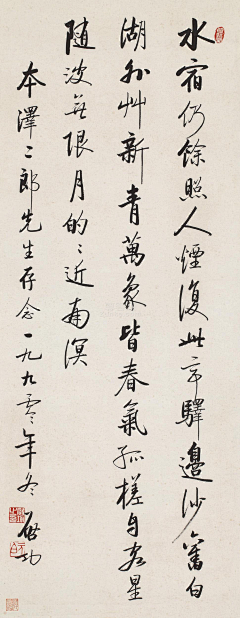 水宿仍餘照人煙復此亭驛邊沙舊白
湖外艸新青萬象皆春氣孤槎自客星
随波无限月的〻近南溟
本澤二郎先生存念一九九零年冬 啟功